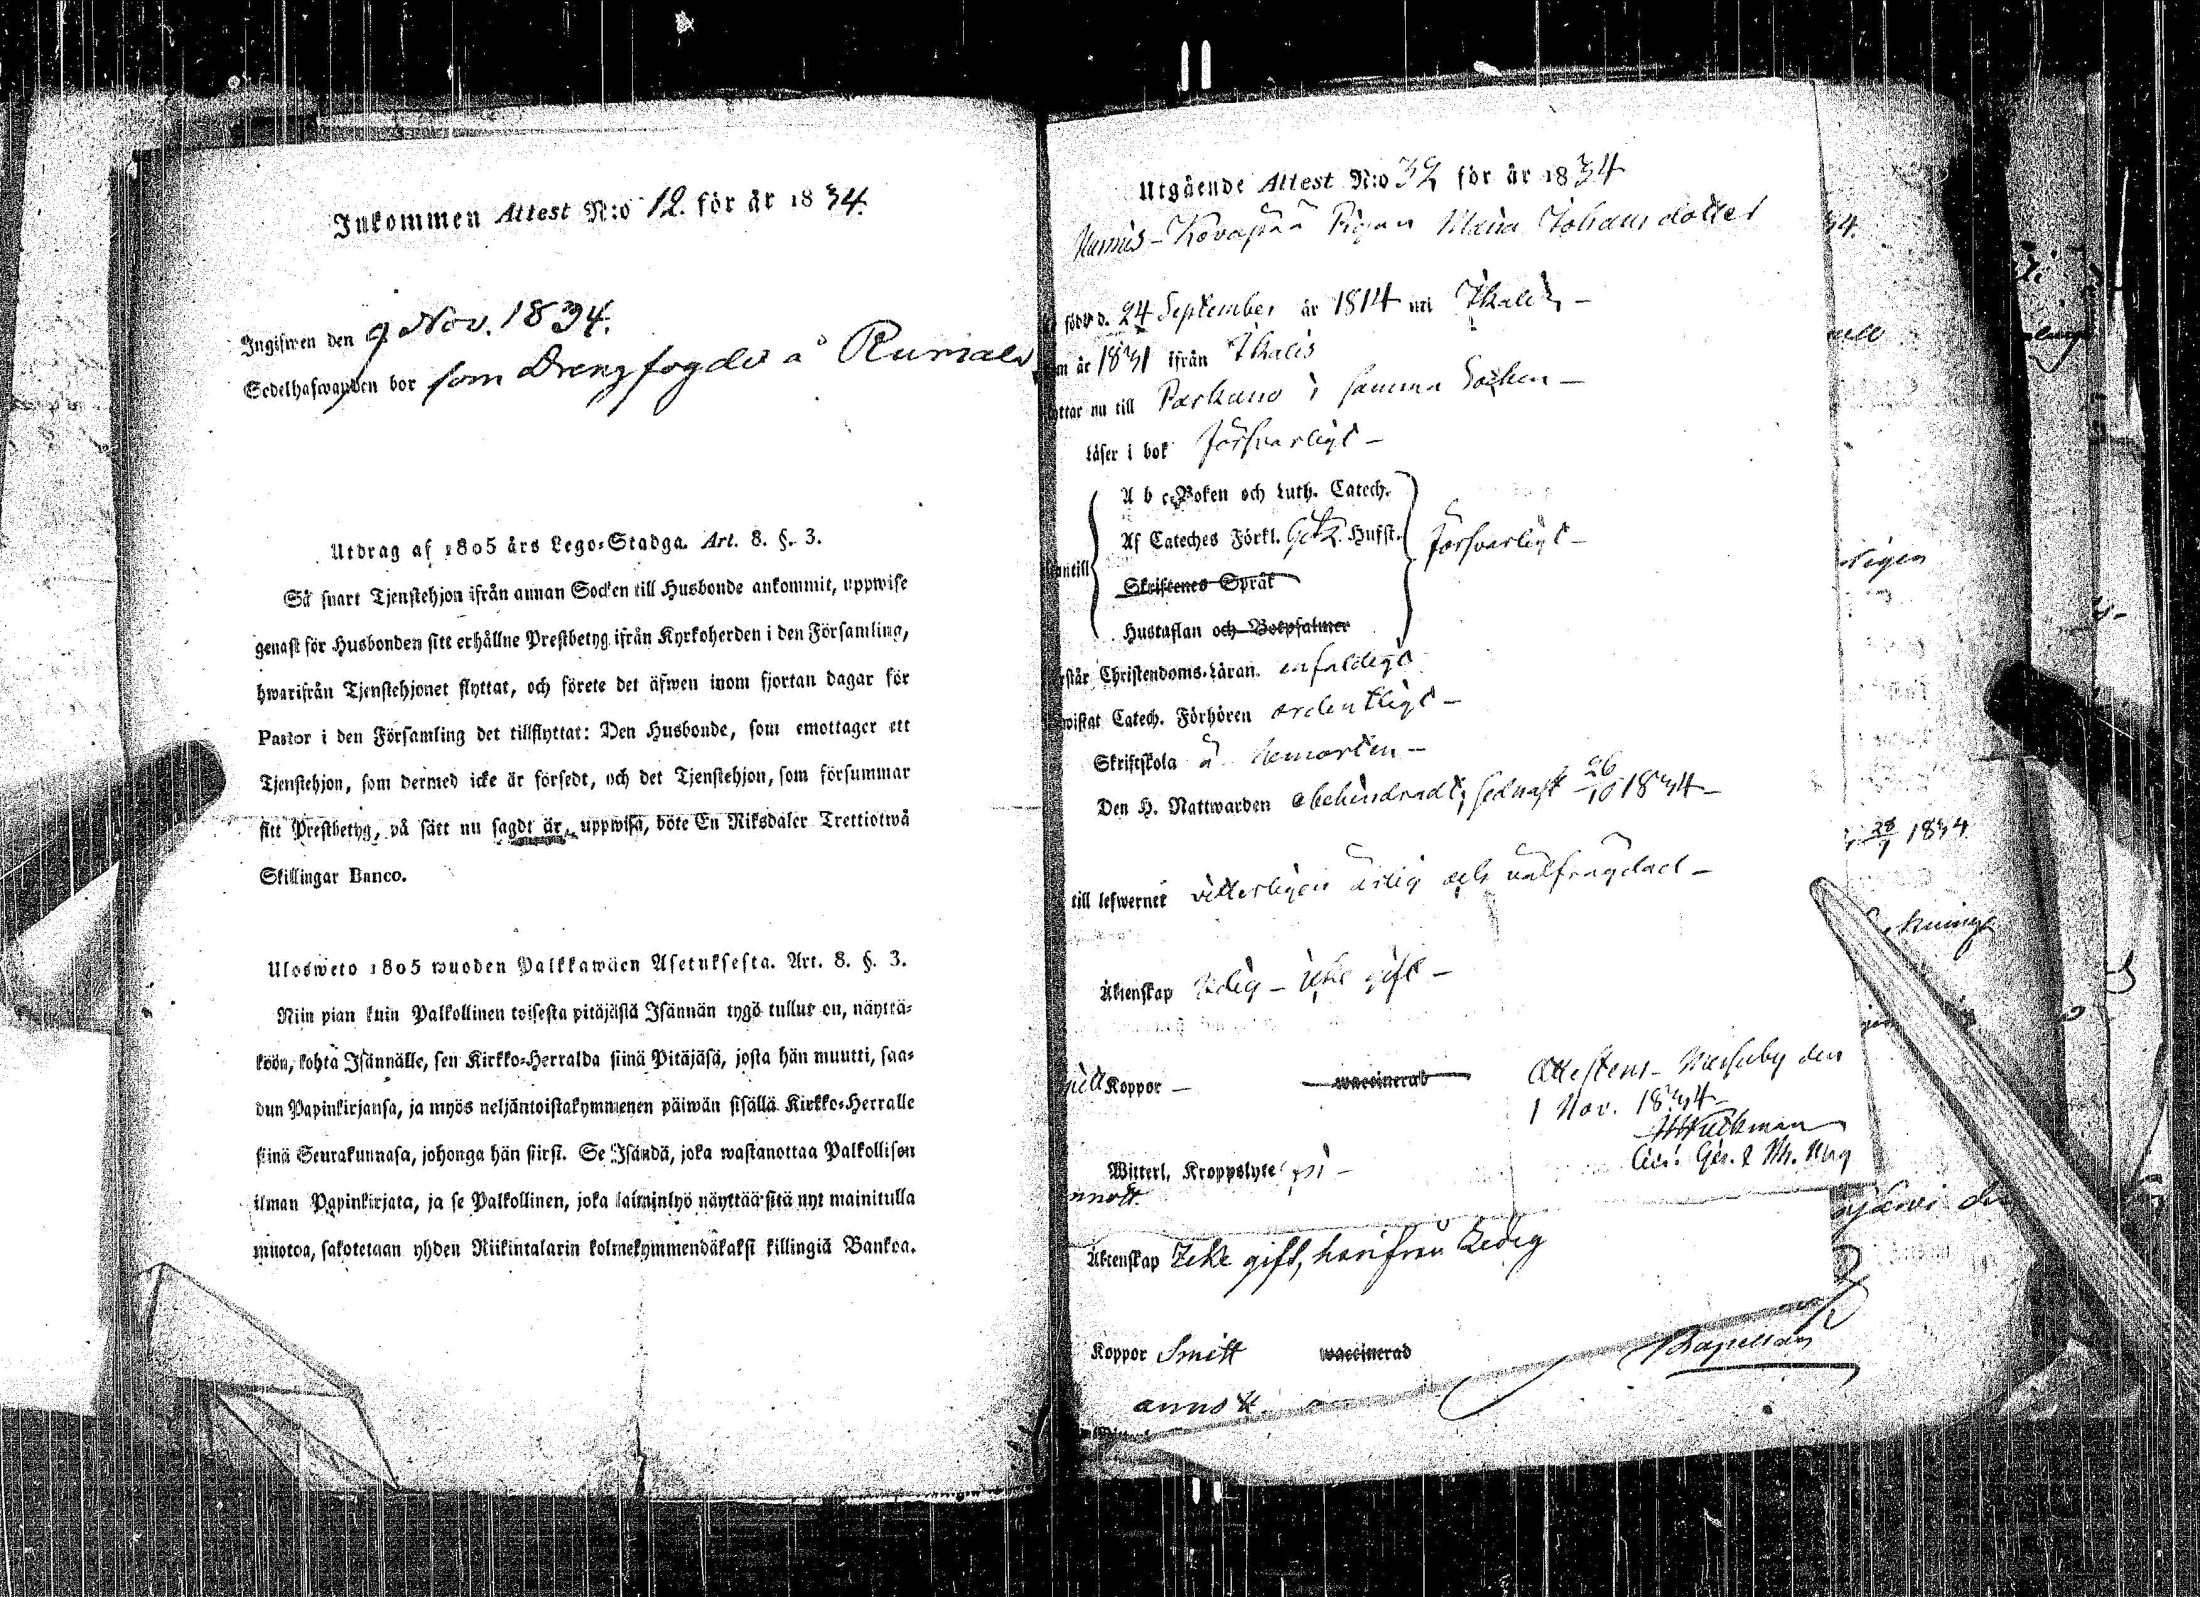 Inkommen Attest N:o 12. för år 1834.
Ingifwen den 9 Nov. 1834.
Sedelhafwanden bor som Drengfogde å
Utdrag af 1805 års Lego-Stadga. Art. 8. §. 3.
Så snart Tjenstehjon ifrån annan Socken till Husbonde ankommit, uppwise
genast för Husbonden sitt erhållne Prestbetyg ifrån Kyrkoherden i den Församling,
hwarifrån Tjenstehjonet flyttat, och förete det äfwen inom fjortan dagar för
Pastor i den Församling det tillflyttat: Den Husbonde, som emottager ett
Tjenstehjon, som dermed icke är försedt, och det Tjenstehjon, som försummar
sitt Prestbetyg, på sätt nu sagdt är, uppwisa, böte En Riksdaler Trettiotwå
Skillingar Banco.
Ulosweto 1805 wuoden Palkkawäen Asetuksesta. Art. 8. §. 3.
Niin pian kuin Palkollinen toisesta pitäjästä Isännän tygö tullut on, näyttä-
köön, kohta Isännälle, sen Kirkko-Herralda siinä Pitäjäsä, josta hän muutti, saa-
dun Papinkirjansa, ja myös neljäntoistakymmenen päiwän sisällä Kirkko-Herralle
siinä Seurakunnasa, johonga hän siirsi. Se Isändä, joka wastanottaa Palkollisen
ilman Papinkirjata, ja se Palkollinen, joka laiminlyö näyttää sitä nyt mainitulla
muotoa, sakotetaan yhden Riikintalarin kolmekymmendäkaksi killingiä Bankoa.
Utgående Attest N:o 32 för år 1834
Pigan Maria Johansdotter
född d. 24 September år 1814 uti Ikalis –
år 1831 ifrån Ikalis
nu till Parkano i samma Socken –
Läser i bok försvarligt –
A b c-Boken och Luth. Catech.
Af Cateches Förkl. Hufst.
försvarligt –
Skriftenes Språk
Hustaflan och Botpsalmer
Christendoms-Läran enfaldigt
Catech. Förhören ordentligt –
Skriftskola å
Den H. Nattwarden obehindradt, sednast 26/10 1834 –
till lefwernet vitterligen ärlig och välfrägdad –
Äktenskap ledig – icke gift –
Koppor – waccinerad
Attesteras den
1 Nov. 1834 –
Witterl. Kroppslyte
Äktenskap Icke gift, härifrån Ledig
Koppor Smitt waccinerad
Kapellan
28/9 1834